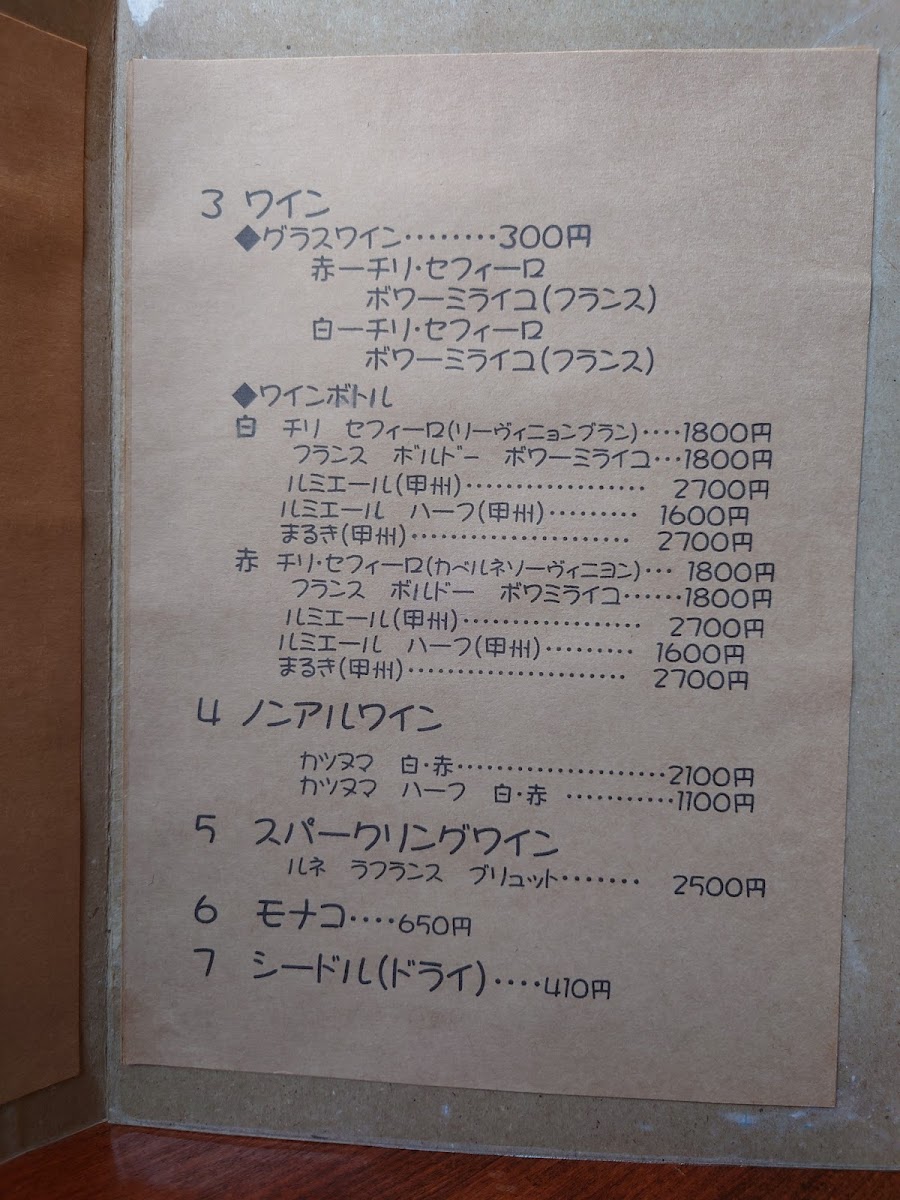 3 ワイン
◆グラスワイン‥‥‥‥300円
赤ーチリ・セフィーロ
ボワーミライユ(フランス)
白ーチリ・セフィーロ
ボワーミライユ(フランス)
◆ワインボトル
白 チリ セフィーロ(リーヴィニョンブラン)‥‥1800円
フランス ボルドー ボワーミライユ…1800円
ルミエール(甲州)‥‥‥‥‥‥‥‥‥ 2700円
ルミエール ハーフ(甲州)‥‥‥‥… 1600円
まるき(甲州)‥‥‥‥‥‥‥‥‥‥‥ 2700円
赤 チリ・セフィーロ(カベルネソーヴィニヨン)… 1800円
フランス ボルドー ボワミライユ‥‥‥1800円
ルミエール(甲州)‥‥‥‥‥‥‥‥‥ 2700円
ルミエール ハーフ(甲州)‥‥‥‥… 1600円
まるき(甲州)‥‥‥‥‥‥‥‥‥‥‥ 2700円
4 ノンアルワイン
カツヌマ 白・赤‥‥‥‥‥‥‥‥‥‥…2100円
カツヌマ ハーフ 白・赤 ‥‥‥‥‥…1100円
5 スパークリングワイン
ルネ ラフランス ブリュット‥‥‥… 2500円
6 モナコ‥‥650円
7 シードル(ドライ)‥‥410円